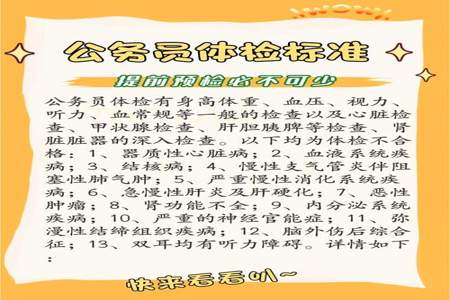 公务员体检标准
提前预检必不可少
公务员体检有身高体重、血压、视力、
听力、血常规等一般的检查以及心脏检
查、甲状腺检查、肝胆胰脾等检查、肾
脏脏器的深入检查。以下均为体检不合
格：1、器质性心脏病；2、血液系统疾
病；3、结核病；4、慢性支气管炎伴阻
塞性肺气肿；5、严重慢性消化系统疾
病；6、急慢性肝炎及肝硬化；7、恶性
肿瘤；8、肾功能不全；9、内分泌系统
疾病；10、严重的神经官能症；11、弥
漫性结缔组织疾病；12、脑外伤后综合
征；13、双耳均有听力障碍。详情如下
：
快来看看叭~